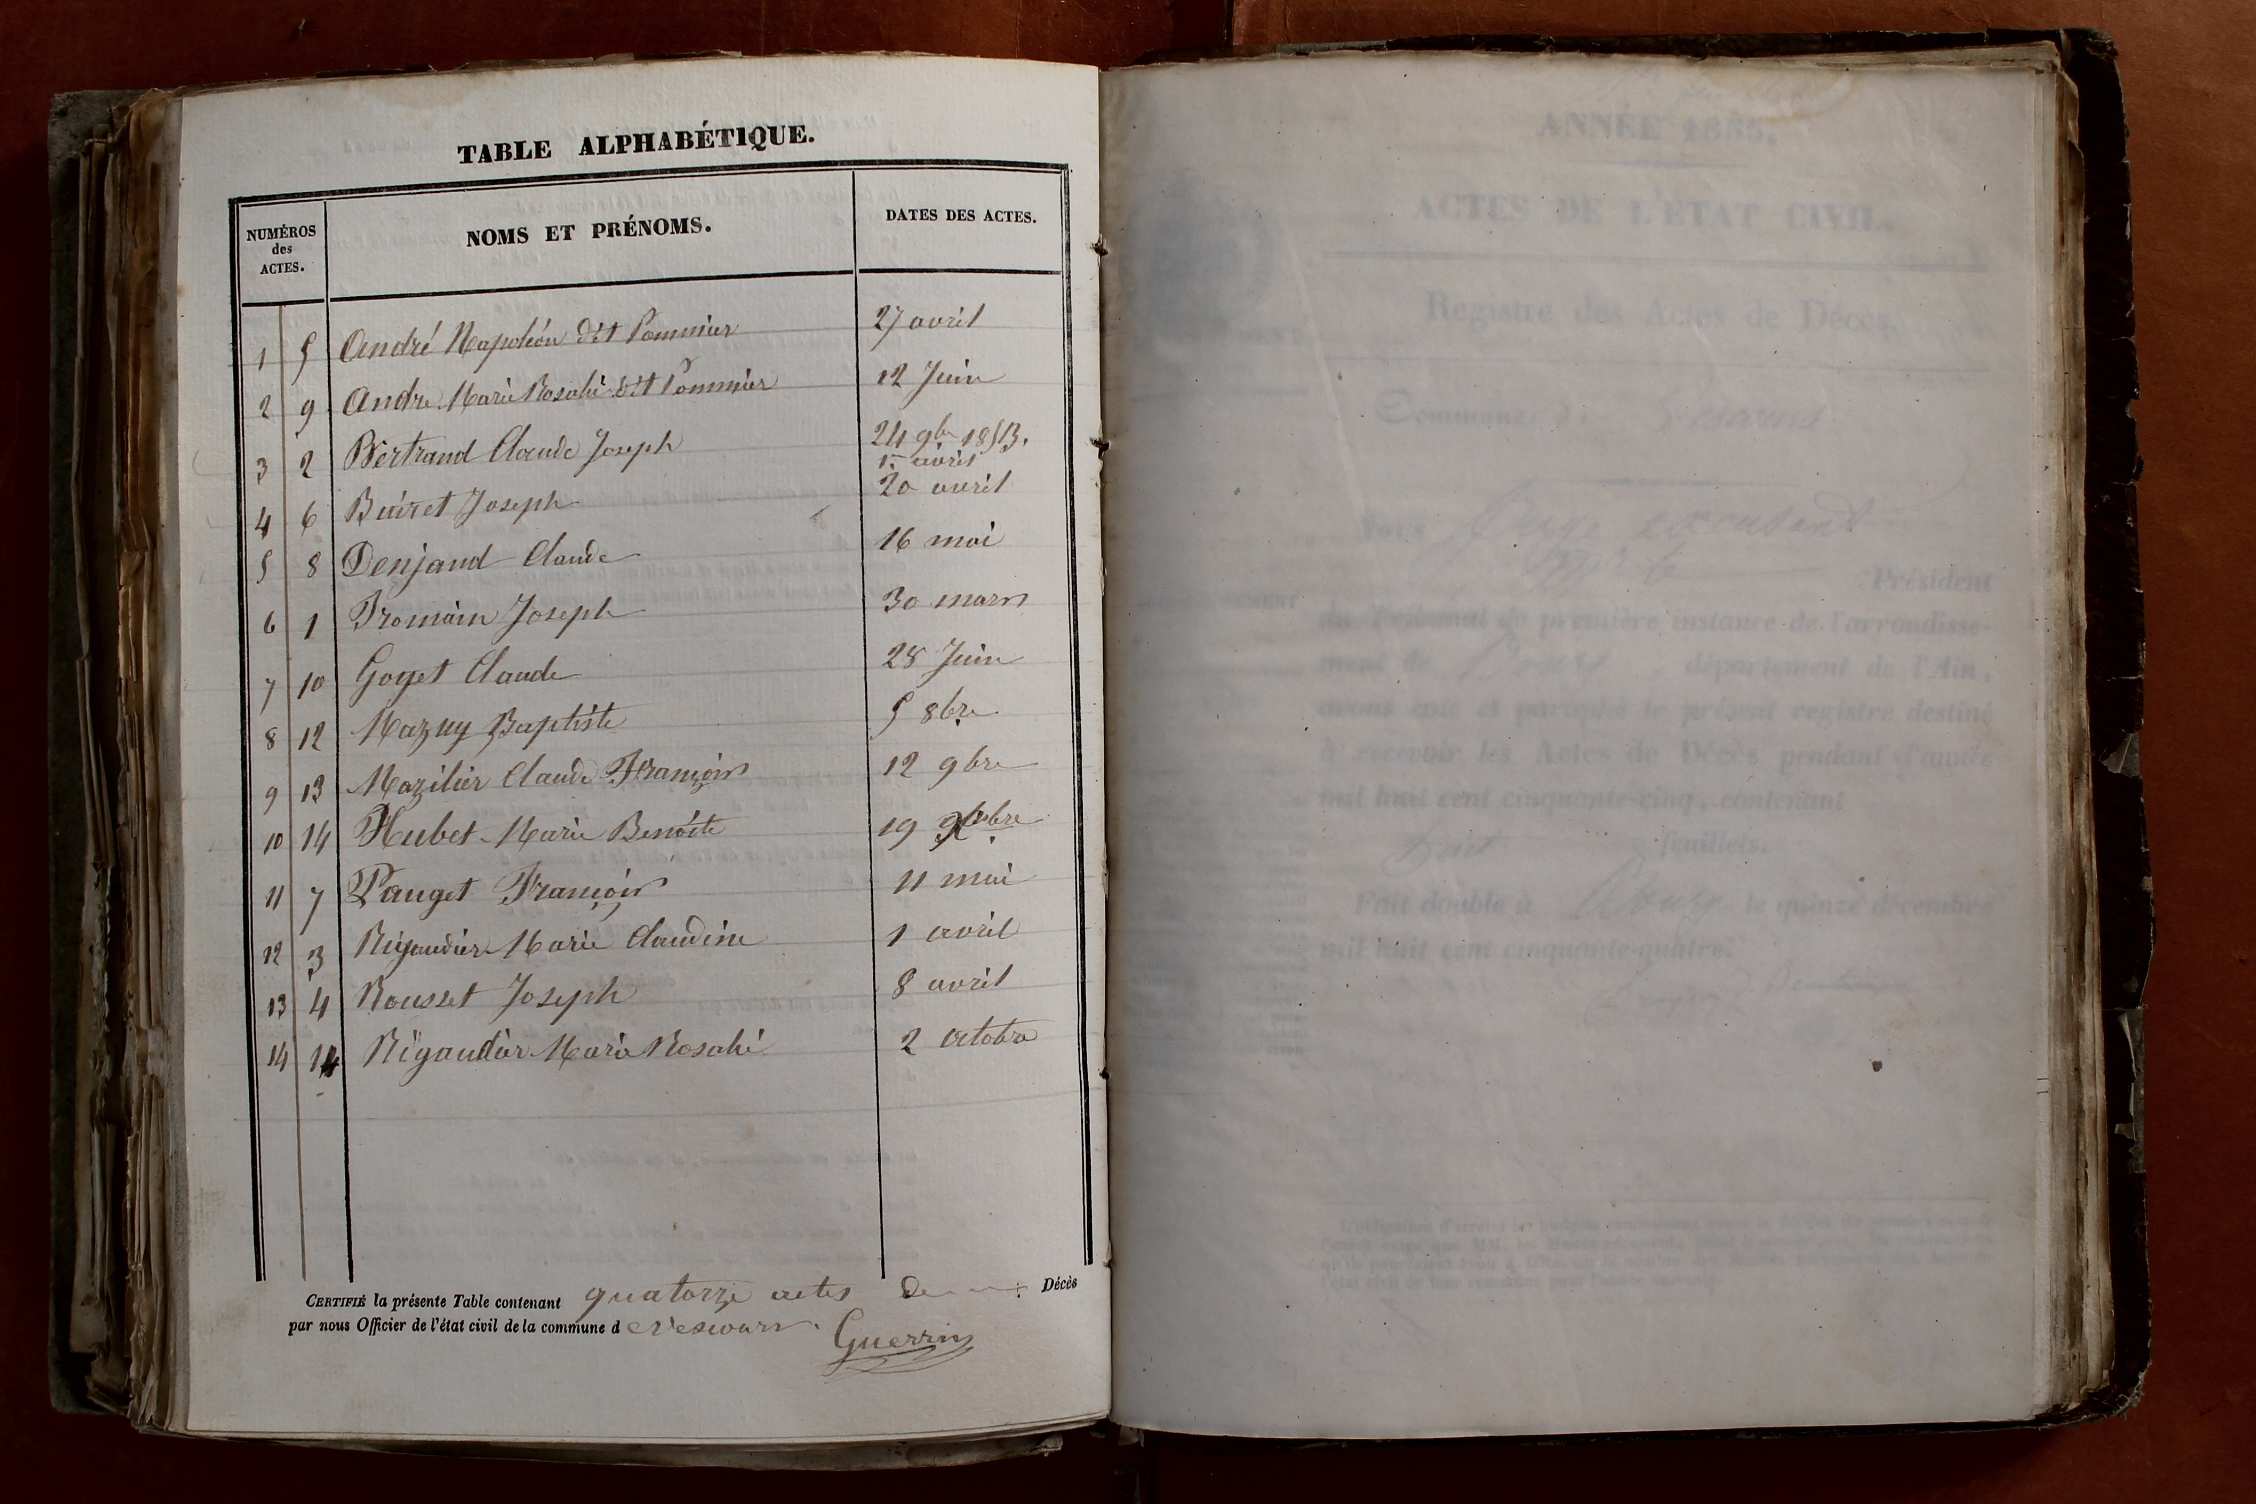 TABLE ALPHABÉTIQUE.
NUMÉROS des ACTES. NOMS ET PRÉNOMS. DATES DES ACTES.
1 5 André Napoléon dit Pommier 27 avril
2 9 André Marie Rosalie dit Pommier 12 Juin
3 2 Bertrand Claude Joseph 24 9bre 1853.
1er avril
4 6 Buiret Joseph 20 avril
5 8 Denjaud Claude 16 mai
6 1 Fromain Joseph 30 mars
7 10 Goyet Claude 28 Juin
8 12 Mazuy Baptiste 5 8bre
9 13 Mazilier Claude François 12 9bre
10 14 Hubet Marie Benoite 19 bre
11 7 Pauget François 11 mai
12 3 Rigaudier Marie Claudine 1 avril
13 4 Rousset Joseph 8 avril
14 Rigaudier Marie Rosalie 2 octobre
CERTIFIÉ la présente Table contenant quatorze actes de Décès
par nous Officier de l'état civil de la commune d e Vescours.
Guerrin
ANNÉE 1855.
ACTES DE L'ÉTAT CIVIL.
Registre des Actes de Décès.
Commune d
Nous
Président
du Tribunal de première instance de l'arrondisse-
ment de Bourg département de l'Ain,
avons coté et paraphé le présent registre destiné
à recevoir les Actes de Décès pendant l'année
mil huit cent cinquante-cinq, contenant
huit feuillets.
Fait double à Bourg le quinze décembre
mil huit cent cinquante-quatre.